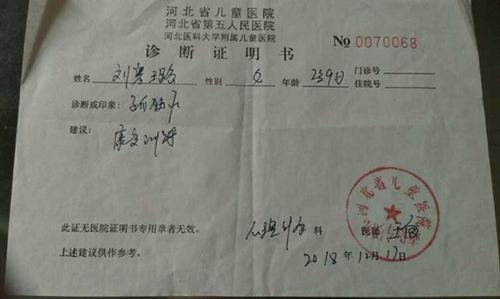 河北省儿童医院
河北省第五人民医院
河北医科大学附属儿童医院
诊断证明书
No 0070068
姓名 刘 性别 女 年龄 门诊号
住院号
诊断或印象:
建议: 康复训练
河北省儿童医院
此证无医院证明书专用章者无效。 科 医师
上述建议供作参考。 2018年12月17日